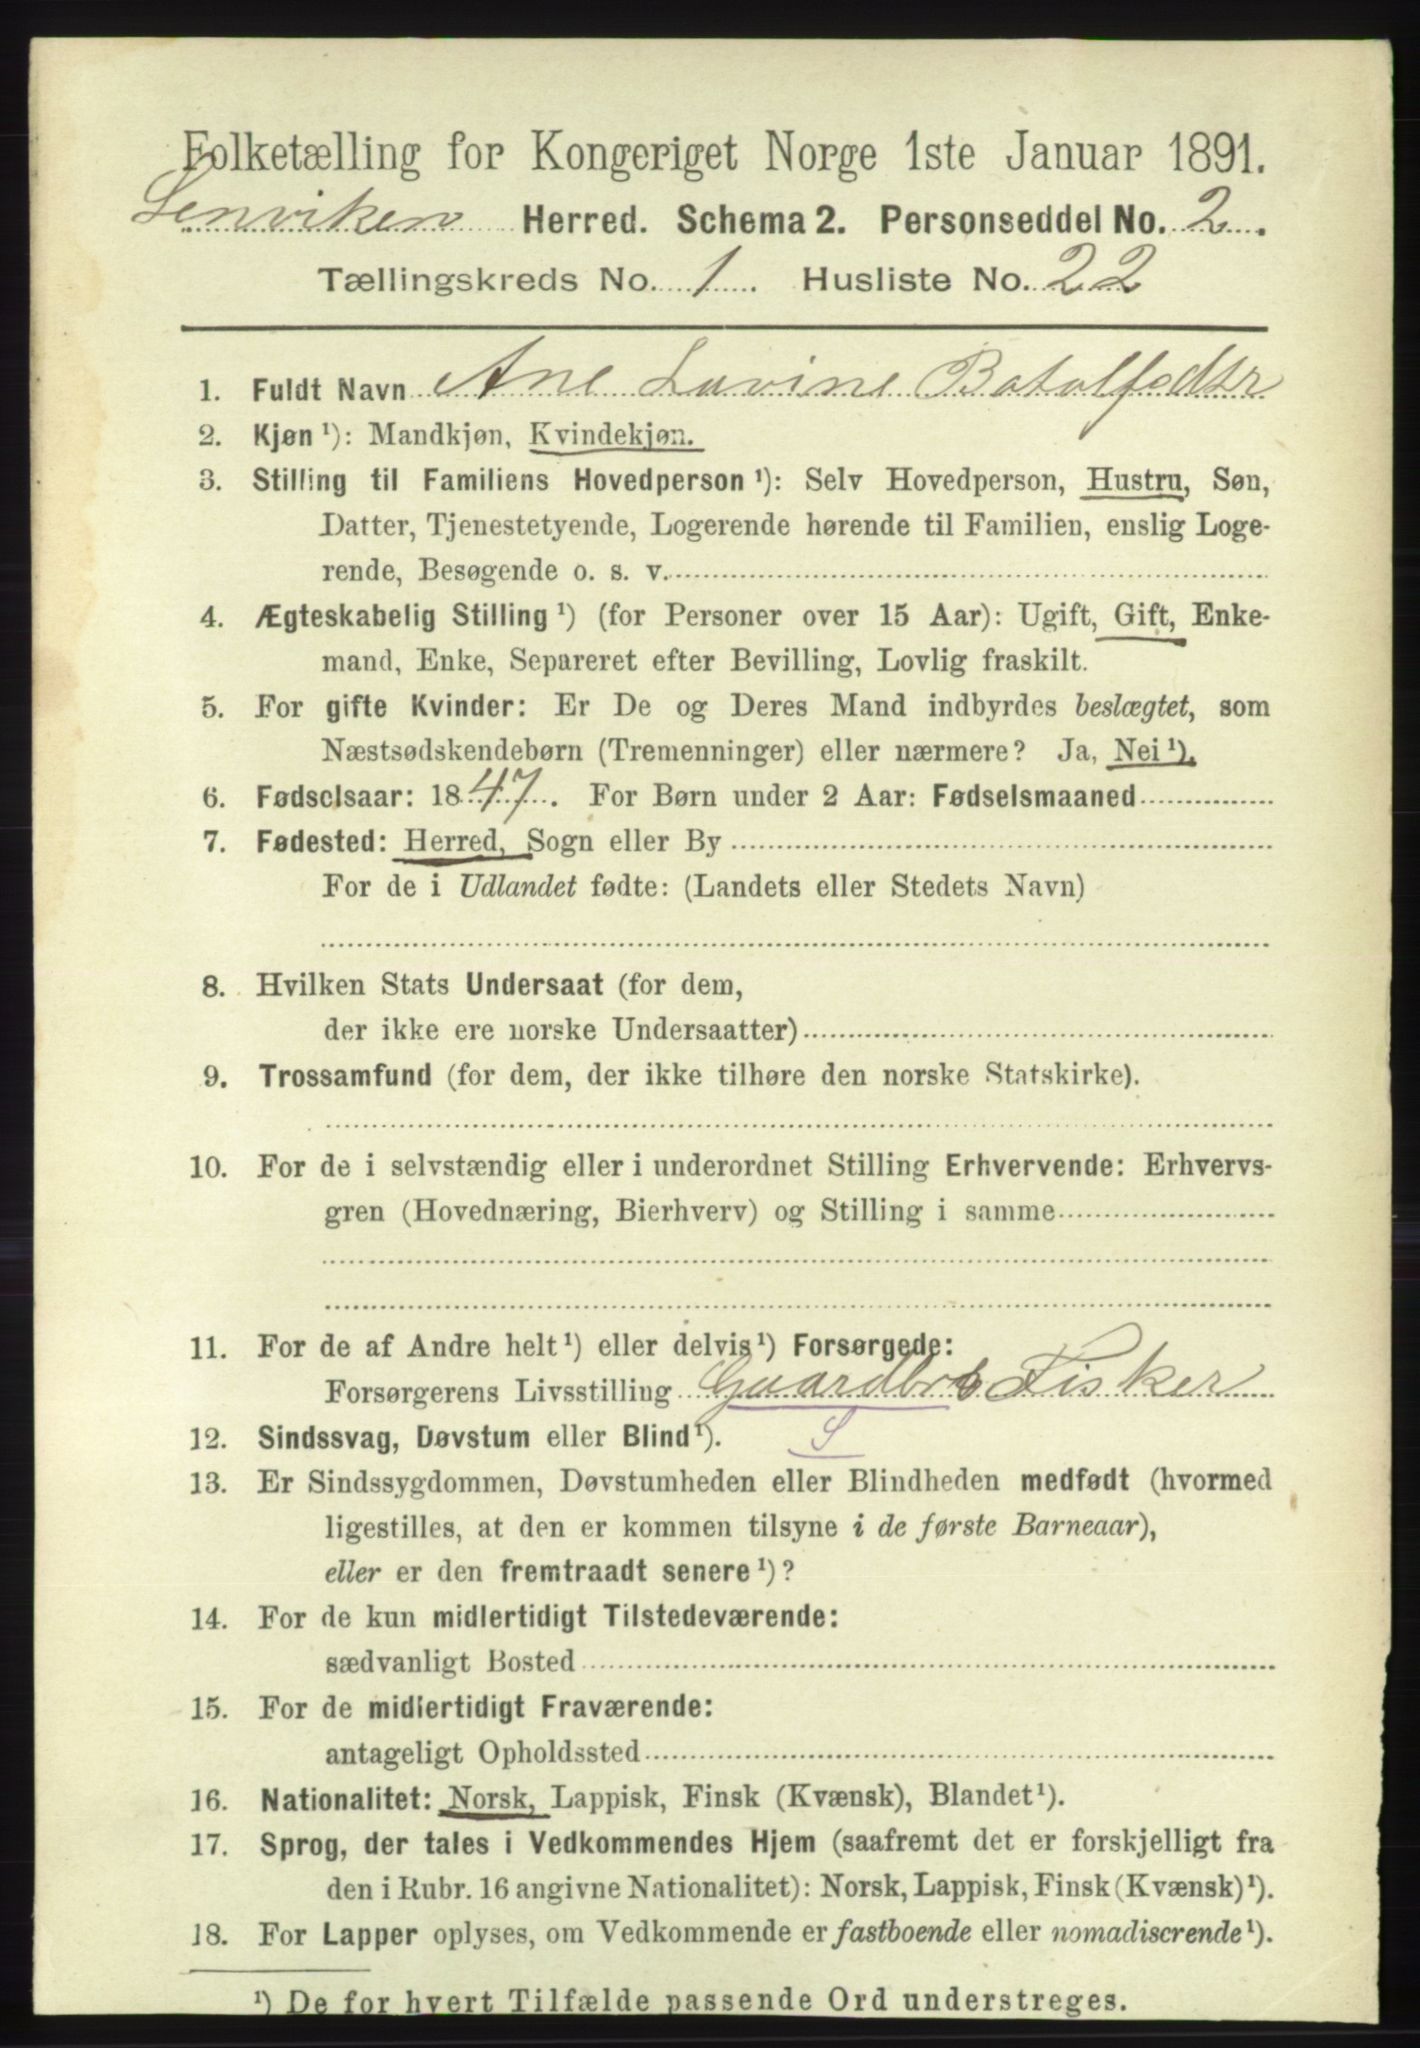 Folketælling for Kongeriget Norge 1ste Januar 1891.
Lenviken Herred. Schema 2. Personseddel No. 2.
Tællingskreds No. 1. Husliste No. 22
1. Fuldt Navn Ane Lovine Botolfsdtr
2. Kjøn ¹): Mandkjøn, Kvindekjøn.
3. Stilling til Familiens Hovedperson ¹): Selv Hovedperson, Hustru, Søn,
Datter, Tjenestetyende, Logerende hørende til Familien, enslig Loge-
rende, Besøgende o. s. v.
4. Ægteskabelig Stilling ¹) (for Personer over 15 Aar): Ugift, Gift, Enke-
mand, Enke, Separeret efter Bevilling, Lovlig fraskilt.
5. For gifte Kvinder: Er De og Deres Mand indbyrdes beslægtet, som
Næstsødskendebørn (Tremenninger) eller nærmere? Ja, Nei ¹).
6. Fødselsaar: 1847. For Børn under 2 Aar: Fødselsmaaned
7. Fødested: Herred, Sogn eller By
For de i Udlandet fødte: (Landets eller Stedets Navn)
8. Hvilken Stats Undersaat (for dem,
der ikke ere norske Undersaatter)
9. Trossamfund (for dem, der ikke tilhøre den norske Statskirke).
10. For de i selvstændig eller i underordnet Stilling Erhvervende: Erhvervs-
gren (Hovednæring, Bierhverv) og Stilling i samme
11. For de af Andre helt ¹) eller delvis ¹) Forsørgede:
Forsørgerens Livsstilling Gaardbr & Fisker
S
12. Sindssvag, Døvstum eller Blind ¹).
13. Er Sindssygdommen, Døvstumheden eller Blindheden medfødt (hvormed
ligestilles, at den er kommen tilsyne i de første Barneaar),
eller er den fremtraadt senere ¹)?
14. For de kun midlertidigt Tilstedeværende:
sædvanligt Bosted
15. For de midlertidigt Fraværende:
antageligt Opholdssted
16. Nationalitet: Norsk, Lappisk, Finsk (Kvænsk), Blandet ¹).
17. Sprog, der tales i Vedkommendes Hjem (saafremt det er forskjelligt fra
den i Rubr. 16 angivne Nationalitet): Norsk, Lappisk, Finsk (Kvænsk) ¹).
18. For Lapper oplyses, om Vedkommende er fastboende eller nomadiserende ¹).
¹) De for hvert Tilfælde passende Ord understreges.